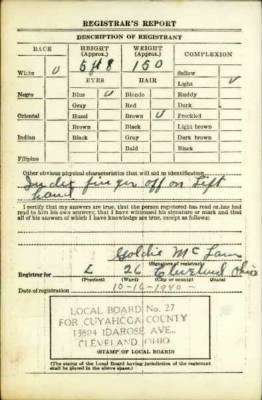 REGISTRAR'S REPORT
DESCRIPTION OF REGISTRANT
RACE HEIGHT (Approx.) WEIGHT (Approx.) COMPLEXION
5ft 8 150
White ✓ Sallow
EYES HAIR Light ✓
Negro Blue ✓ Blonde Ruddy
Gray Red Dark
Oriental Hazel Brown ✓ Freckled
Brown Black Light brown
Indian Black Gray Dark brown
Bald Black
Filipino
Other obvious physical characteristics that will aid in identification
Index finger off on Left
hand.
I certify that my answers are true; that the person registered has read or has had
read to him his own answers; that I have witnessed his signature or mark and that
all of his answers of which I have knowledge are true, except as follows:
Goldie McLain
(Signature of registrar)
Registrar for L 26 Cleveland Ohio
(Precinct) (Ward) (City or county) (State)
Date of registration 10-16-1940
LOCAL BOARD No. 27
FOR CUYAHOGA COUNTY
13804 IDAROSE AVE.
CLEVELAND, OHIO
(STAMP OF LOCAL BOARD)
(The stamp of the Local Board having jurisdiction of the registrant
shall be placed in the above space.)